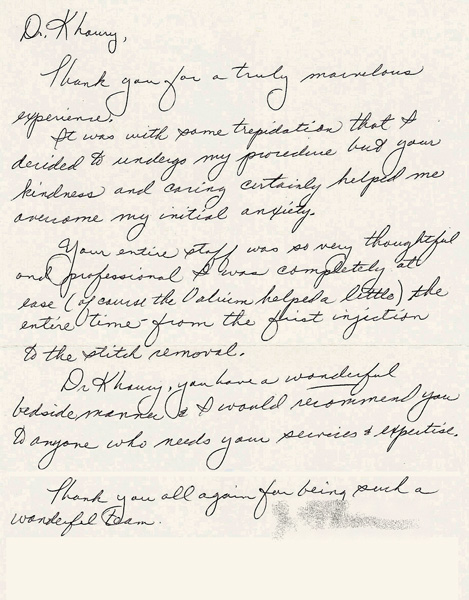 Dr. Khoury,
Thank you for a truly marvelous
experience.
It was with some trepidation that I
decided to undergo my procedure but your
kindness and caring certainly helped me
overcome my initial anxiety.
Your entire staff was so very thoughtful
and professional I was completely at
ease (of course the Valium helped a little) the
entire time - from the first injection
to the stitch removal.
Dr Khoury, you have a wonderful
bedside manner & I would recommend you
to anyone who needs your services & expertise.
Thank you all again for being such a
wonderful team.